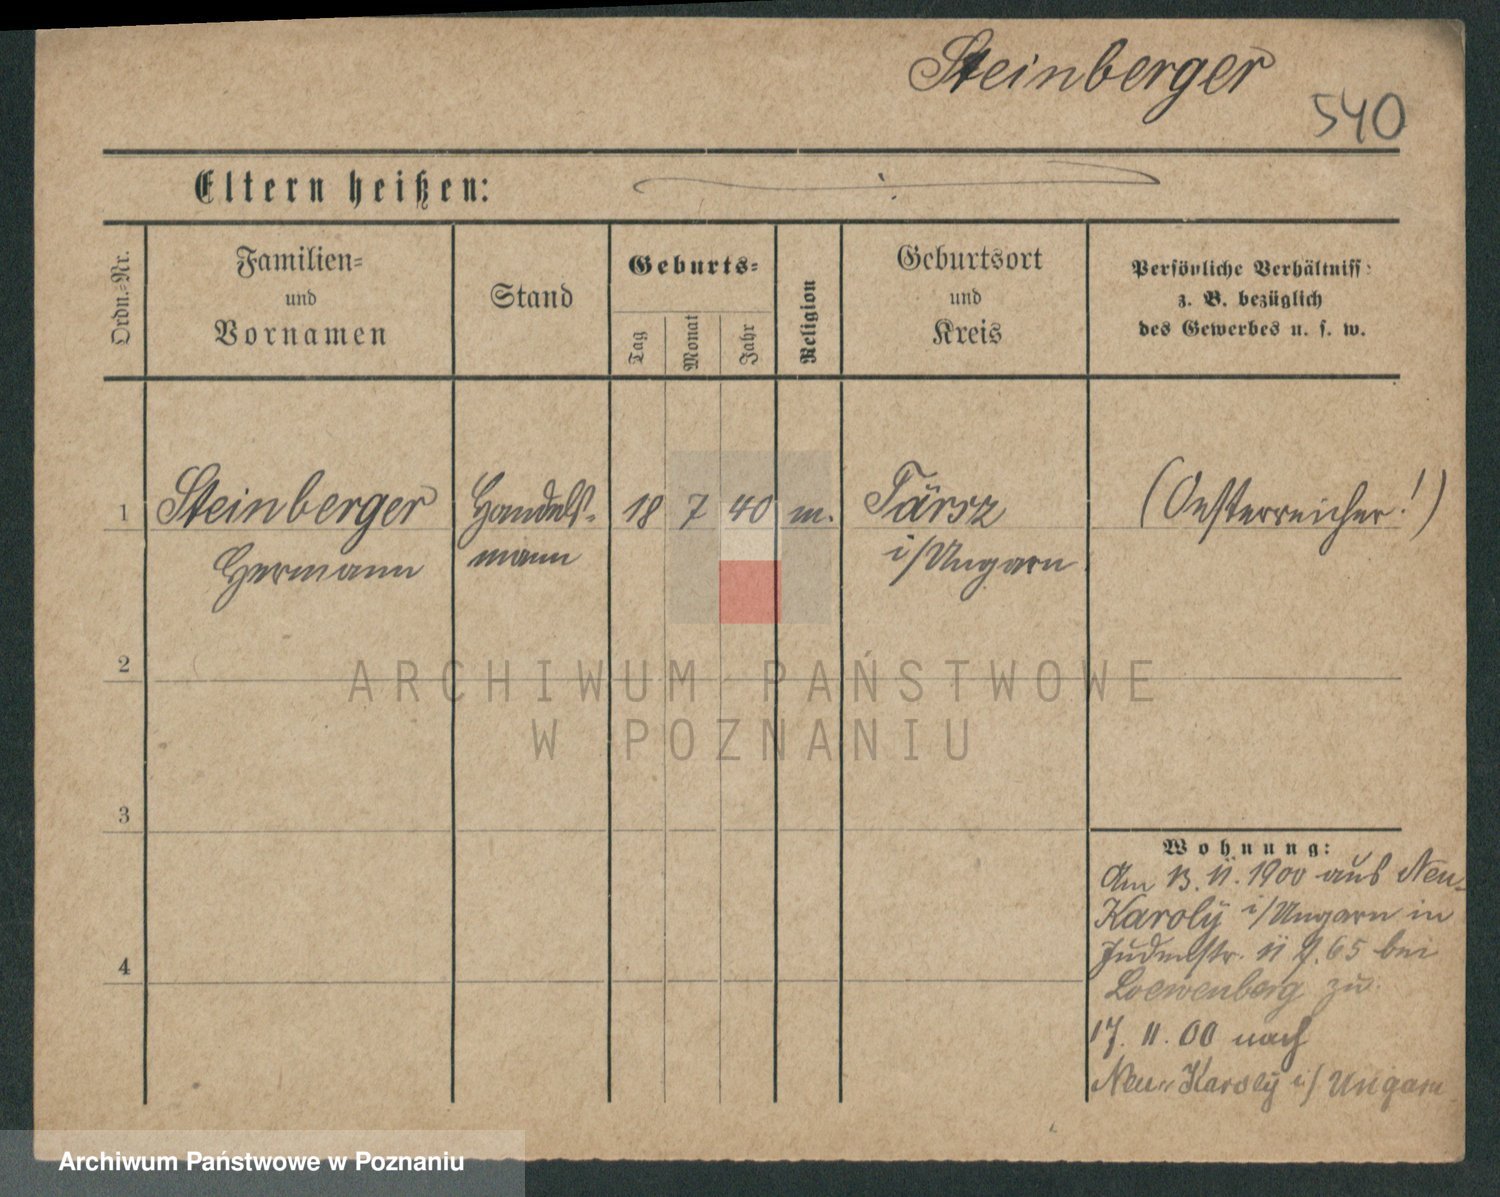 Steinberger
540
Eltern heißen:
Ordn.-Nr.
Familien-
und
Vornamen
Stand
Geburts-
Tag
Monat
Jahr
Religion
Geburtsort
und
Kreis
Persönliche Verhältniss
z. B. bezüglich
des Gewerbes u. s. w.
1 Steinberger Handels- 18 7 40 m. Tärsz (Oesterreicher!)
Hermann mann i/Ungarn
2
ARCHIWUM PAŃSTWOWE
W POZNANIU
3
Wohnung:
Am 13. 11. 1900 aus Neu-
Karolÿ i/Ungarn in
Judenstr. 65 bei
Loewenberg zu.
4
17. 11. 00 nach
Neu-Karolÿ i/Ungarn
Archiwum Państwowe w Poznaniu